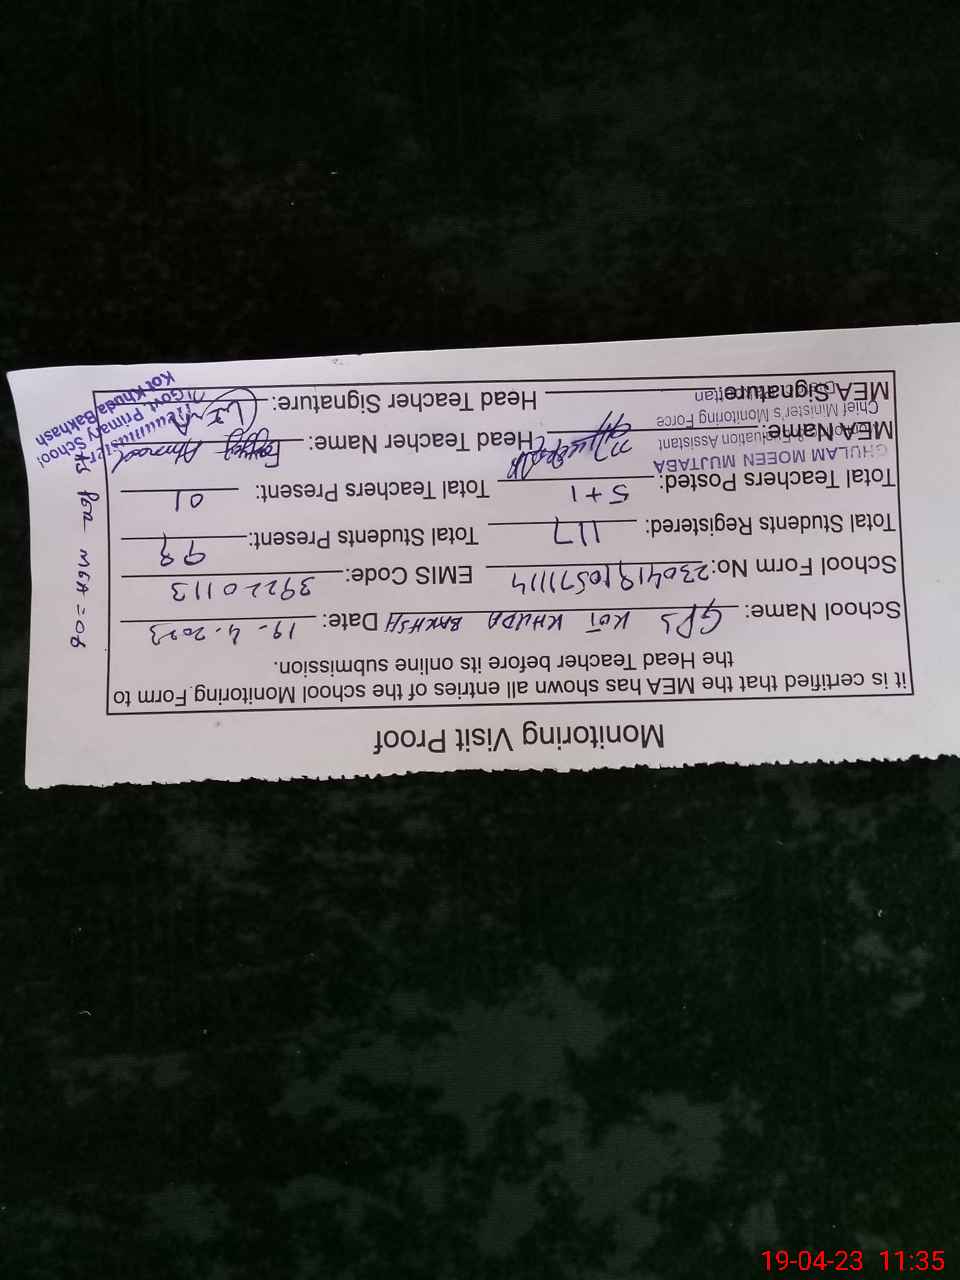 Monitoring Visit Proof
it is certified that the MEA has shown all entries of the school Monitoring Form to
the Head Teacher before its online submission.
School Name: GPS KOT KHUDA BAKHSH Date: 19-4-2023
School Form No: 230419 EMIS Code: 39220113
Total Students Registered: 117 Total Students Present: 98
Total Teachers Posted: 5+1 Total Teachers Present: 01
GHULAM MOEEN MUJTABA
MEA Name: Head Teacher Name: Ahmad
Monitoring & Evaluation Assistant
Chief Minister's Monitoring Force
MEA Signature: Head Teacher Signature:
Govt Primary School
Kot Khuda Bakhash
As Per MEA = 06
19-04-23 11:35